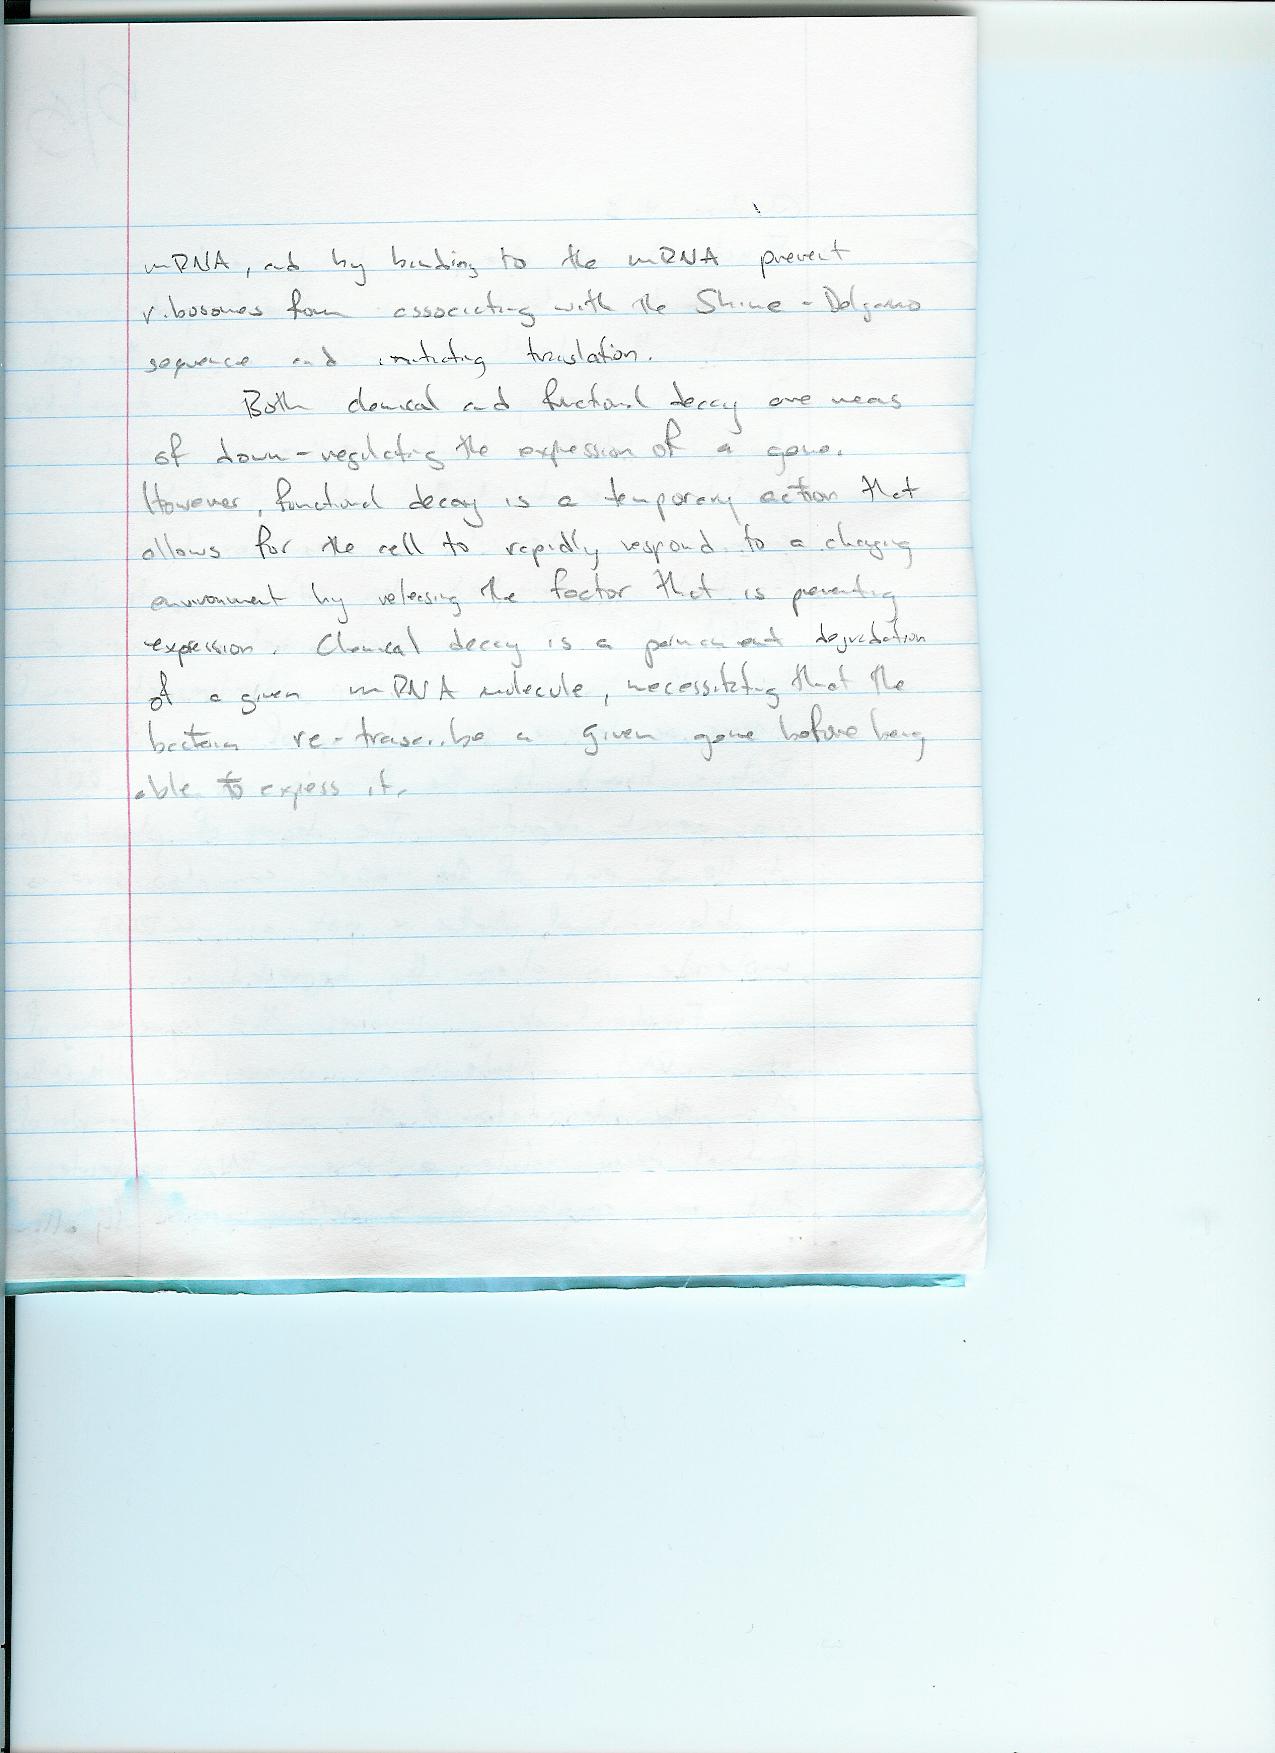 mRNA, and by binding to the mRNA prevent
ribosomes from associating with the Shine-Dalgarno
sequence and initiating translation.
Both chemical and functional decay are means
of down-regulating the expression of a gene.
However, functional decay is a temporary action that
allows for the cell to rapidly respond to a changing
environment by releasing the factor that is preventing
expression. Chemical decay is a permanent degradation
of a given mRNA molecule, necessitating that the
bacteria re-transcribe a given gene before being
able to express it.